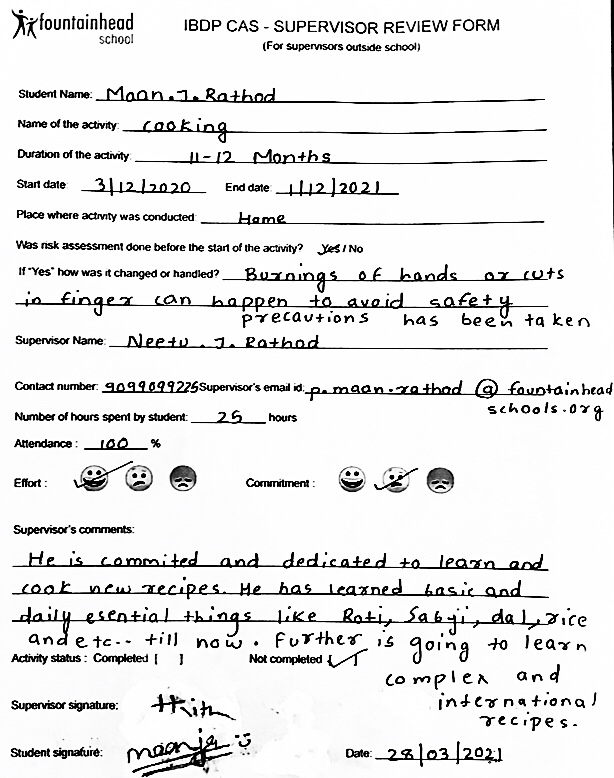 fountainhead
school
IBDP CAS - SUPERVISOR REVIEW FORM
(For supervisors outside school)
Student Name: Maan.J.Rathod
Name of the activity: cooking
Duration of the activity: 11-12 Months
Start date: 3/12/2020 End date: 1/12/2021
Place where activity was conducted: Home
Was risk assessment done before the start of the activity? Yes / No
If "Yes" how was it changed or handled? Burnings of hands or cuts
in finger can happen to avoid safety
precautions has been taken
Supervisor Name: Neetu . J. Rathod
Contact number: 9099099225 Supervisor's email id: p.maan.rathod @ fountainhead
schools.org
Number of hours spent by student: 25 hours
Attendance : 100 %
Effort : Commitment :
Supervisor's comments:
He is commited and dedicated to learn and
cook new recipes. He has learned basic and
daily esential things like Roti, Sabyi, dal, rice
and etc.. till now. Further is going to learn
Activity status : Completed [ ] Not completed [✓]
complex and
international
recipes.
Supervisor signature:
Student signature: maanjr
Date: 28/03/2021